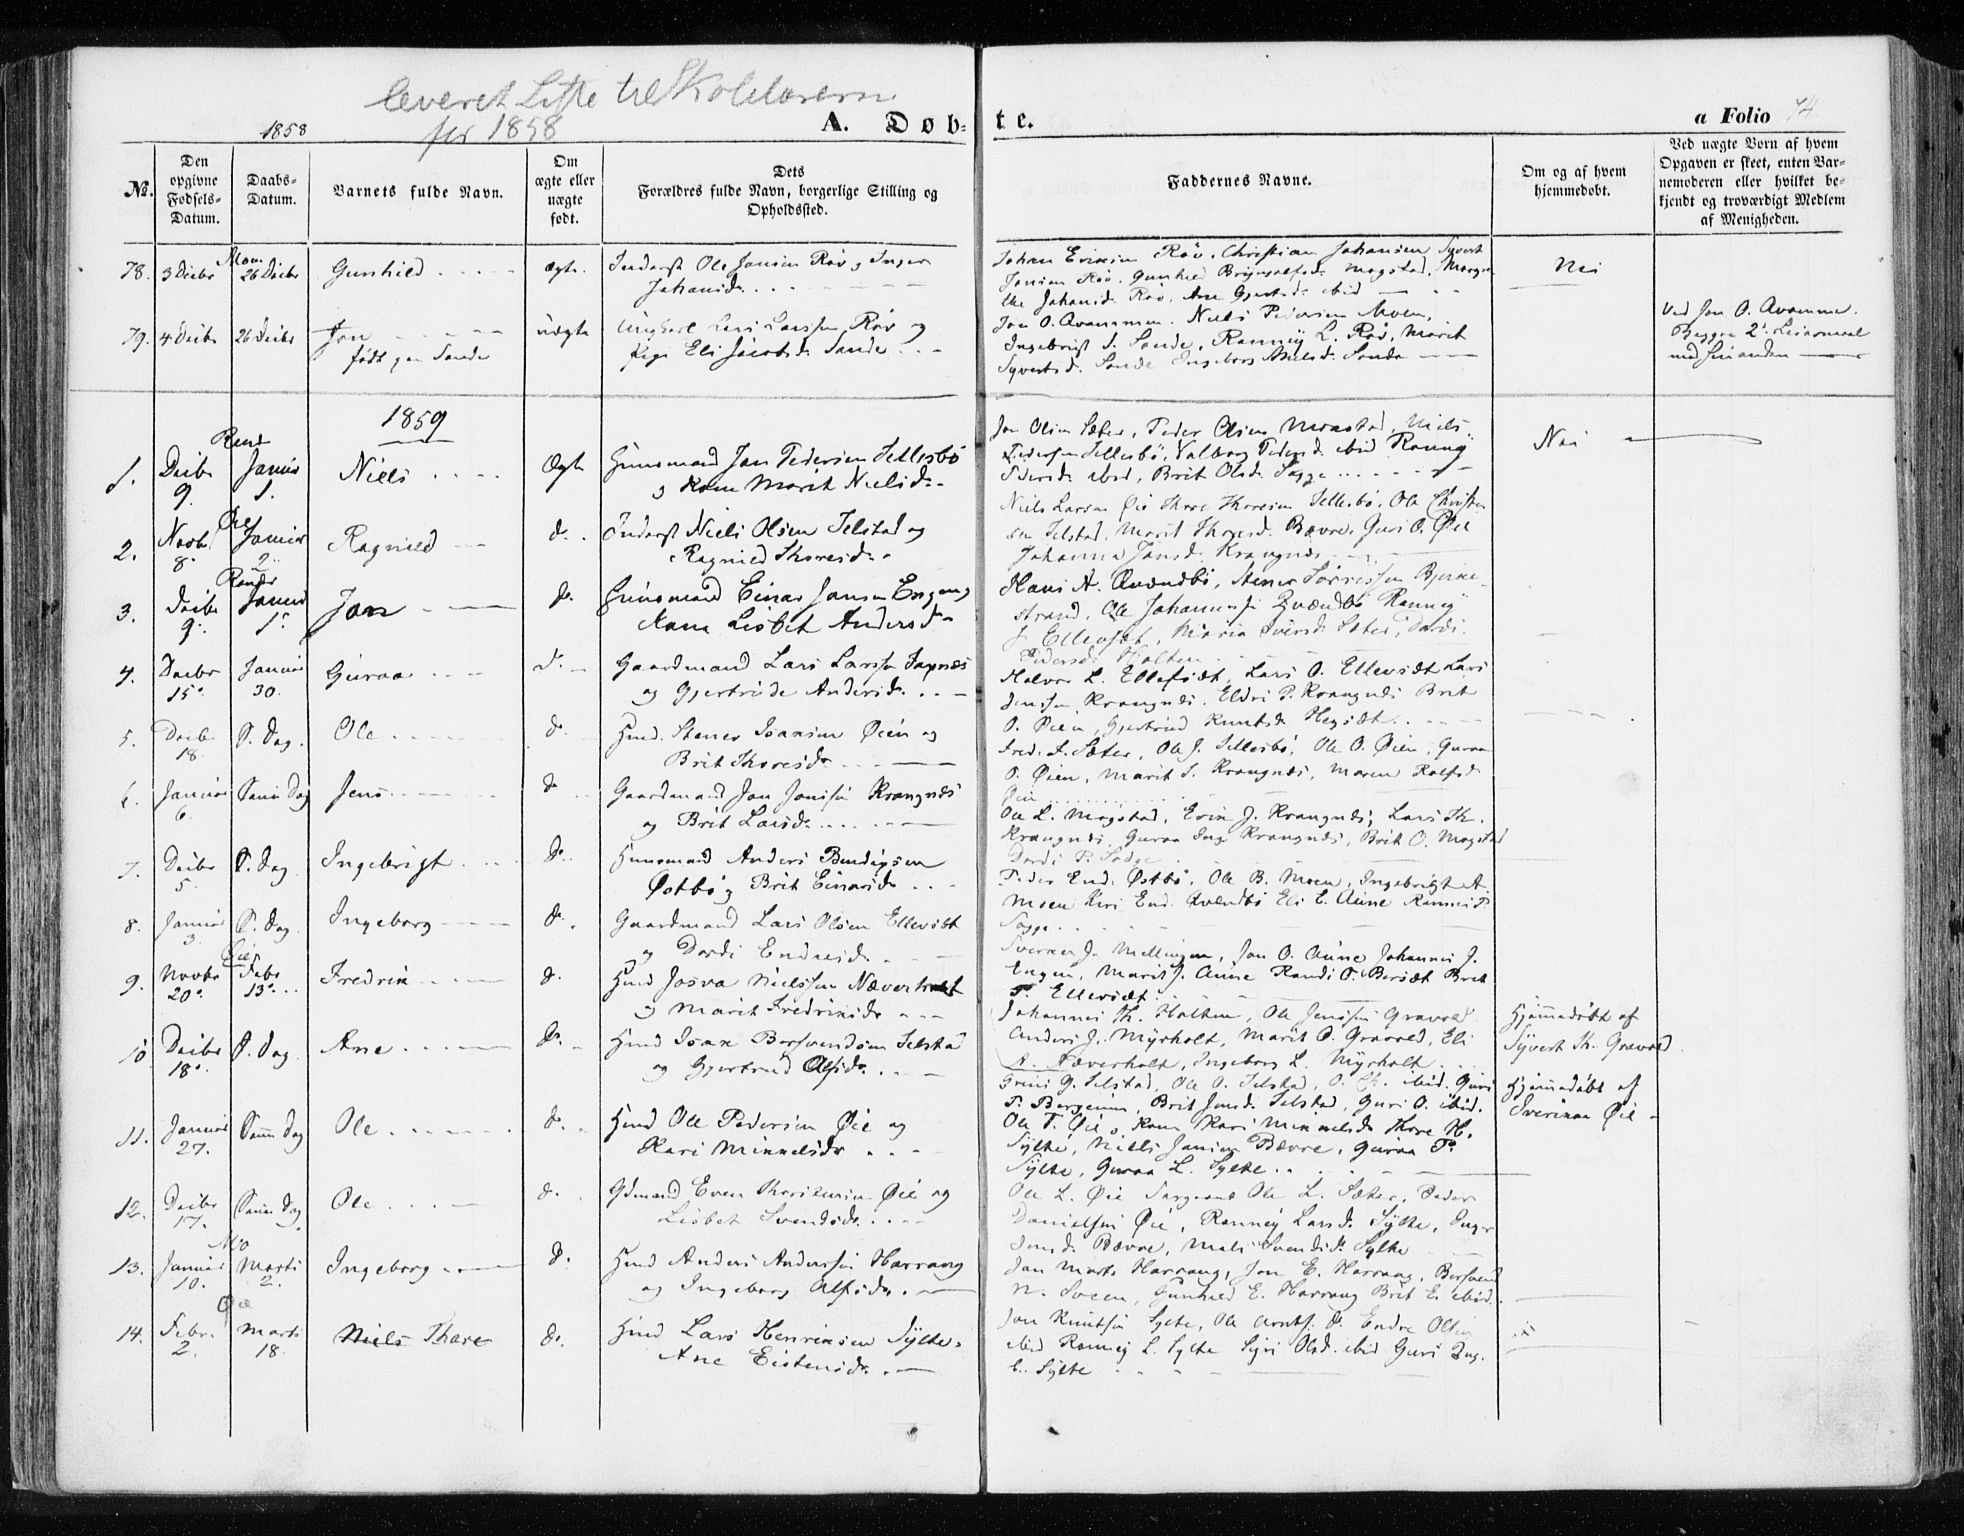 leveret Liste til Skolelærerne
for 1858
1858
A. Døb-
te.
a Folio 74
No.
Den opgivne Fødsels-Datum.
Daabs-Datum.
Barnets fulde Navn.
Om ægte eller uægte født.
Dets Forældres fulde Navn, borgerlige Stilling og Opholdssted.
Faddernes Navne.
Om og af hvem hjemmedøbt.
Ved uægte Born af hvem Opgaven er skeet, enten Barnemoderen eller hvilket bekjendt og troværdigt Medlem af Menigheden.
78. 3 Decbr 26 Decbr Gunhild ægte Inderst Ole Jonsen Røv og Inger
Johansdr.
Johan Ericksen Røv, Christian Johansen, Syvert
Jonsen Røv, Gunhild Brynjolfsd. Mogstad, Margre
the Johansd. Røv, Ane ibid
Nei
79. 4 Decbr 26 Decbr Jon
født paa Sande
uægte Ungkarl Lars Larssen Røv og
Pige Eli Jacobsdr Sande
Jon O. Niels Pedersen Moen,
Ingebrigt S. Sande, Ranney L. Røv, Marit
Syvertsd. Sande Engebor Sande
Ved Jon O.
Begges 2. Leiermaal
med hinanden
1859
1. Decbr 9. Januar 1. Niels Ægte Huusmand Jon Pedersen Settesbø
og Kone Marit Nielsdr
Jon Olsen Sæter, Peder Olsen Mogstad, Niels
Pedersen Sellesbø, Valborg Pedersd. ibid Ranney
Pedersd. ibid, Brit Olsd. Sogge
Nei
2. Novbr 8. Øie Januar 2. Ragnild d. Inderst Niels Olsen Selstad og
Ragnild Thoresdr
Niels Larsen Øie Thore Thoresen Sellesbø, Ole Christen
sen Selstad, Marit Thoresd. Bævre, Guri O. Øie
Johanna Jonsd. Krangnæs
3. Decbr 9. Januar 1. Jon d. Huusmand Einar Jonsen Engen og
Kone Lisbet Andersdr
Hans A. Qvændbø, Stener Bjerke-
strand, Ole Johannessen Qvændbø Ranney
J. Ellevsæt, Maria Iversd. Sæter, Dordi
Pedersd. Holten
4. Decbr 15. Januar 30. Guroa d. Gaardmand Lars Larssen
og Gjertrude Andersdr
Halvor L. Ellefsæt, Lars O. Ellevsæt Lars
Jonsen Krangnæs, Eldri P. Krangnæs Brit
O. Øien, Gjertrud Knutsd. Hegsæt
5. Decbr 18. S. Dag. Ole d. Huusd. Stener Øien og
Brit Thoresdr
Fred. F. Sæter, Ole J. Sellesbø, Ole O. Øien, Guroa
O. Øien, Marit S. Krangnæs, Maren Rolfsd.
Øien
6. Januar 6. Samme Dag Jens d. Gaardmand Jon Jonssen Krangnæs
og Brit Larsdr
Ole L. Mogstad, Erik J. Krangnæs, Lars Th.
Krangnæs, Guroa Krangnæs, Brit O. Mogstad
Dordi P. Sogge
7. Decbr 5. S. Dag Ingebrigt d. Huusmand Anders Bendixsen
Østbø og Brit Einarsdr
Peder End. Østbø, Ole B. Moen, Ingebrigt A.
Moen Kari End. Qvændbø Eli E. Aune Rannei P.
Sogge
8. Januar 3. S. Dag Ingeborg d. Gaardmand Lars Olsen Ellevsæt
og Dordi Endresdr
Sverker J. Mellingen, Jon O. Aune Johannes J.
Engen, Marit J. Aune Randi O. Bersæt Brit
P. Ellevsæt
9. Novbr 20. Øien Febr 13. Fredrik d. Huusd Josva Nielssen Næverholt
og Marit Fredriksdr
Johannes Th. Holten, Ole Jenssen Gravold
Anders J. Myrholt, Marit O. Gravold, Eli
A. Næverholt, Ingeborg L. Myrholt
Hjemmedøbt af
Syvert Th. Gravold
10. Decbr 18. S. Dag. Ane d. Huusd Isak Bersvendsen Selstad
og Gjertrud Olsdr
G. Selstad, Ole O. Selstad, O. Th. ibid. Guri
P. Bergeim, Brit Jonsd. Selstad, Guri O. ibid.
Hjemmedøbt af
Øie
11. Januar 27. Samme Dag Ole d. Huusd Ole Pedersen Øie og
Kari Mikkelsdr
Ole T. Øie, Kone Kari Mikkelsdr Thore H.
Sylte, Niels Jonsen Bævre, Guroa P.
Sylte, Guroa L. Sylte
12. Decbr 17. Samme Dag Ole d. Gdmand Even Øie og
Lisbet Svendsdr
Ole L. Øie Sargeant Ole L. Sæter, Peder
Danielsen Øie, Ranney Larsd. Sylte, Inger
Jonsd. Bævre, Mali Svendsd. Sylte
13. Januar 10. Mo Marts 2. Ingeborg d. Huusd Anders Anderssen Harrang
og Ingeborg Olsdr.
Jon Harrang, Jon E. Harrang, Bersvend
N. Sveen, Gunhild E. Harrang Brit E. ibid.
14. Febr. 2. Øie Marts 18. Niels Thore d. Huusd Lars Henriksen Sylte
Ane Eistensdr
Jon Knutsen Sylte, Ole Arntsen d. Endre Olsen
ibid Ranney L. Sylte Sigri Olsd. ibid Guri Ing.
Sylte